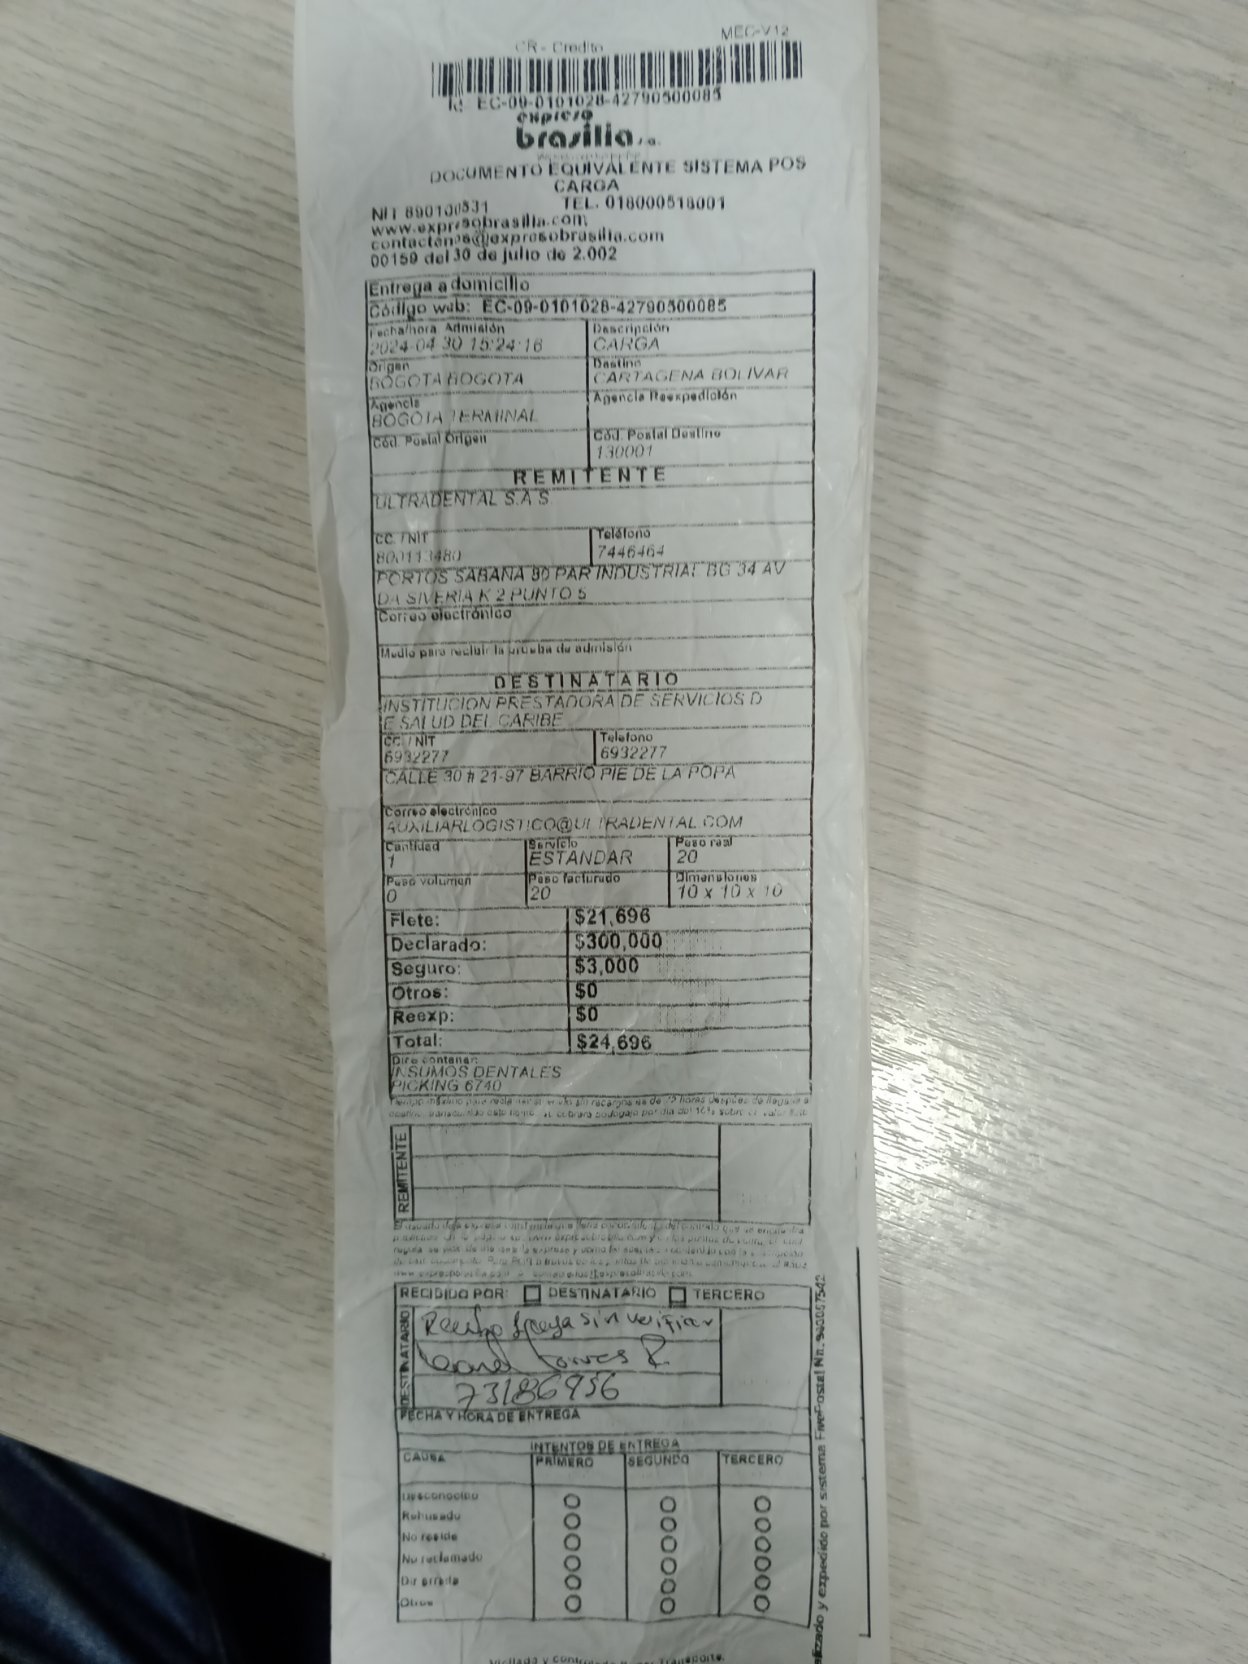 CR - Credito MEC-V12
Id: EC-09-0101028-42790500085
expreso
brasilia s.a.
DOCUMENTO EQUIVALENTE SISTEMA POS
CARGA
NIT 890100531 TEL. 018000518001
www.expresobrasilia.com
contactenos@expresobrasilia.com
00159 del 30 de julio de 2.002
Entrega a domicilio
Código web: EC-09-0101028-42790500085
Fecha/hora Admisión Descripción
2024-04-30 15:24:16 CARGA
Origen Destino
BOGOTA BOGOTA CARTAGENA BOLIVAR
Agencia Agencia Reexpedición
BOGOTA TERMINAL
Cód. Postal Origen Cód. Postal Destino
130001
REMITENTE
ULTRADENTAL S.A.S
CC. / NIT Teléfono
800113480 7446464
PORTOS SABANA 80 PAR INDUSTRIAL BG 34 AV
DA SIVERIA K 2 PUNTO 5
Correo electrónico
Medio para recibir la prueba de admisión
DESTINATARIO
INSTITUCION PRESTADORA DE SERVICIOS D
E SALUD DEL CARIBE
CC. / NIT Telefono
6932277 6932277
CALLE 30 # 21-97 BARRIO PIE DE LA POPA
Correo electrónico
AUXILIARLOGISTICO@ULTRADENTAL.COM
Cantidad Servicio Peso real
1 ESTANDAR 20
Peso volumen Peso facturado Dimensiones
0 20 10 x 10 x 10
Flete: $21,696
Declarado: $300,000
Seguro: $3,000
Otros: $0
Reexp: $0
Total: $24,696
Dice contener:
INSUMOS DENTALES
PICKING 6740
REMITENTE
RECIBIDO POR: DESTINATARIO TERCERO
DESTINATARIO
Recibo sin verificar
Torres R.
73186956
FECHA Y HORA DE ENTREGA
INTENTOS DE ENTREGA
CAUSA PRIMERO SEGUNDO TERCERO
Desconocido
Rehusado
No reside
No reclamado
Dir errada
Otros
y expedido por sistema FivePostal Nit. 900057542
Vigilado y Transporte.